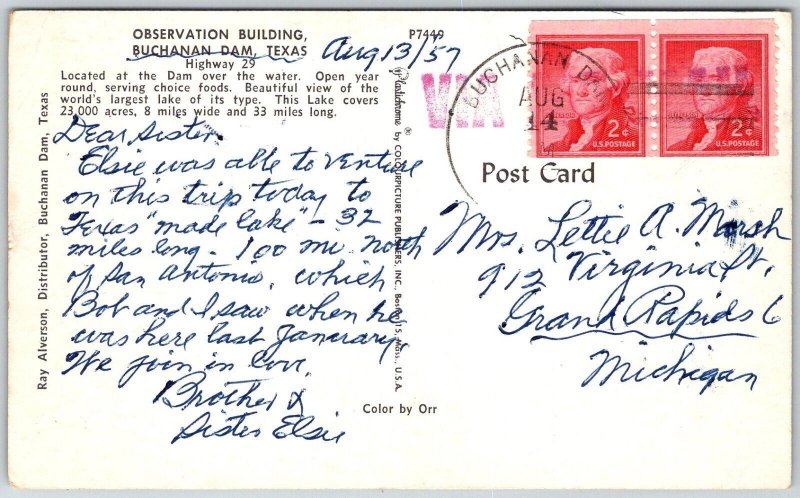 OBSERVATION BUILDING,
BUCHANAN DAM, TEXAS
Highway 29
Located at the Dam over the water. Open year
round, serving choice foods. Beautiful view of the
world's largest lake of its type. This Lake covers
23,000 acres, 8 miles wide and 33 miles long.
P7449
Aug 13/57
Dear Sister,
Elsie was able to venture
on this trip today to
Texas "made lake" - 32
miles long. 100 mi north
of San Antonio, which
Bob and I saw when he
was here last January.
We join in love,
Brother &
Sister Elsie
Ray Alverson, Distributor, Buchanan Dam, Texas
Plastichrome ® by COLOURPICTURE PUBLISHERS, INC., Boston 15, Mass., U.S.A.
VIA
BUCHANAN DAM
AUG
14
2¢
U.S. POSTAGE
2¢
U.S. POSTAGE
Post Card
Mrs. Lettie A. Marsh
912 Virginia St.
Grand Rapids 6
Michigan
Color by Orr